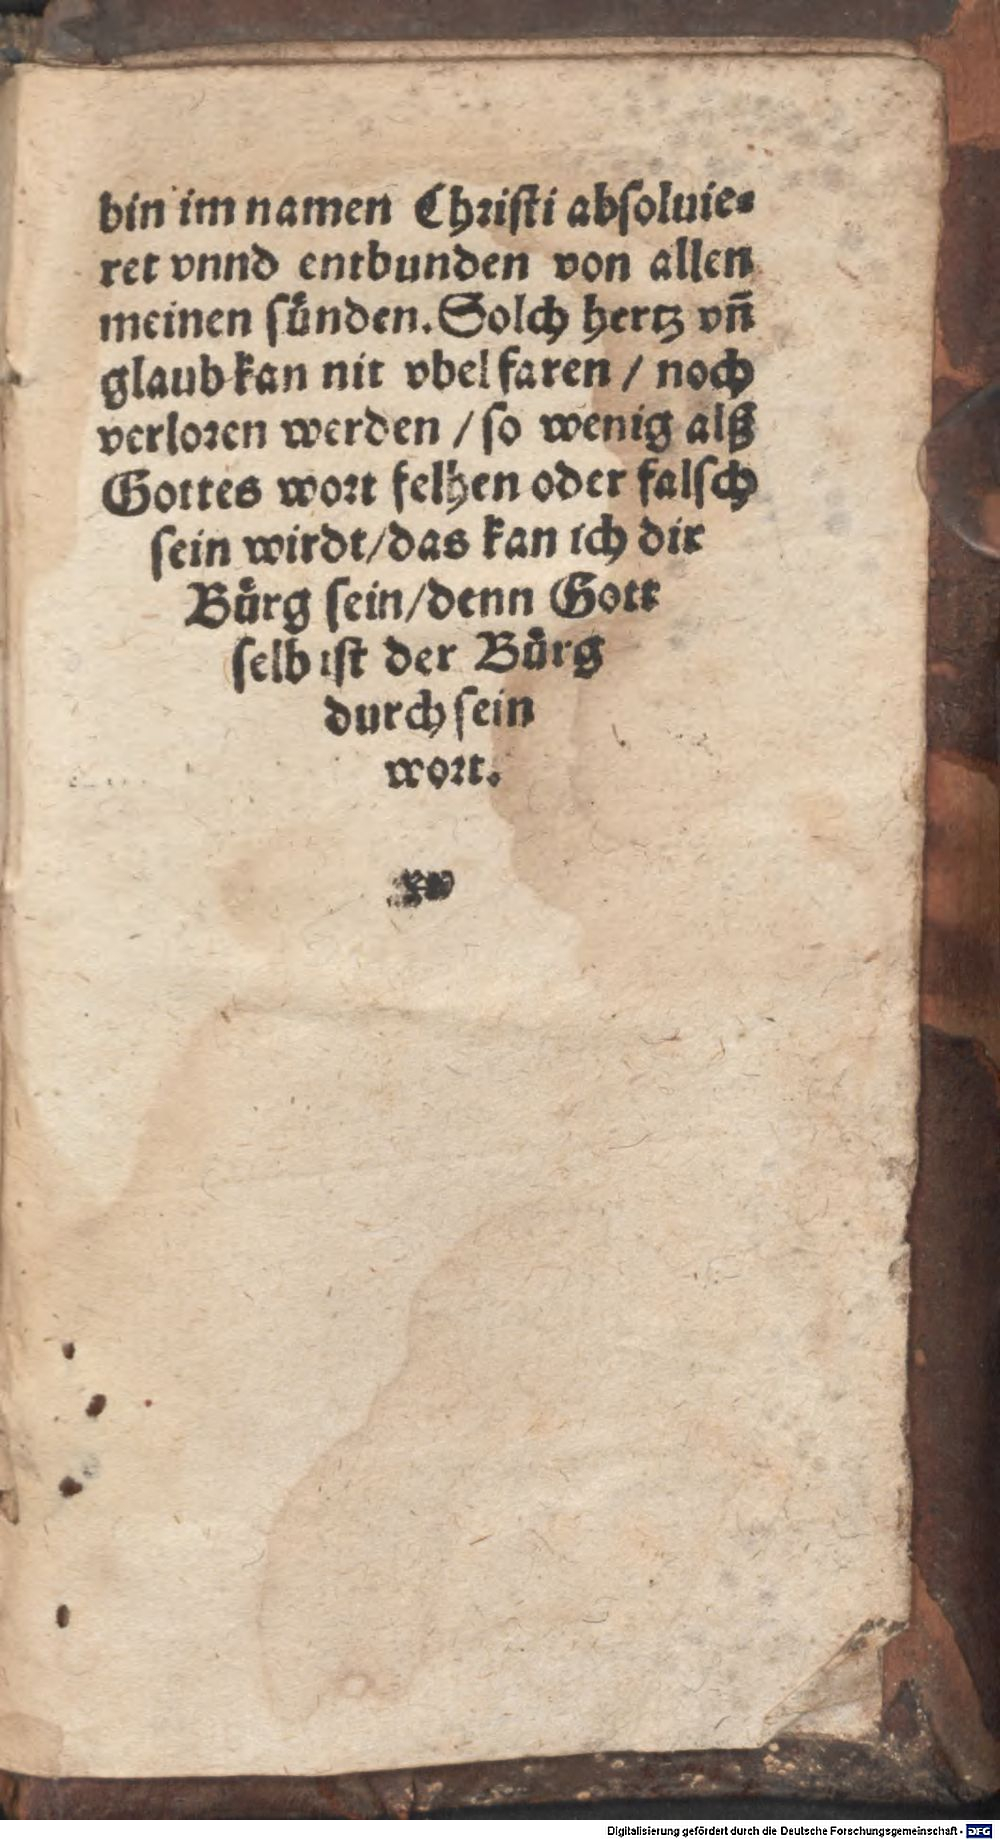 bin im namen Christi absoluie-
ret vnnd entbunden von allen
meinen sünden. Solch hertz vñ
glaub kan nit vbel faren / noch
verloren werden / so wenig alß
Gottes wort felhen oder falsch
sein wirdt / das kan ich dir
Bürg sein / denn Gott
selb ist der Bürg
durch sein
wort.
Digitalisierung gefördert durch die Deutsche Forschungsgemeinschaft - DFG